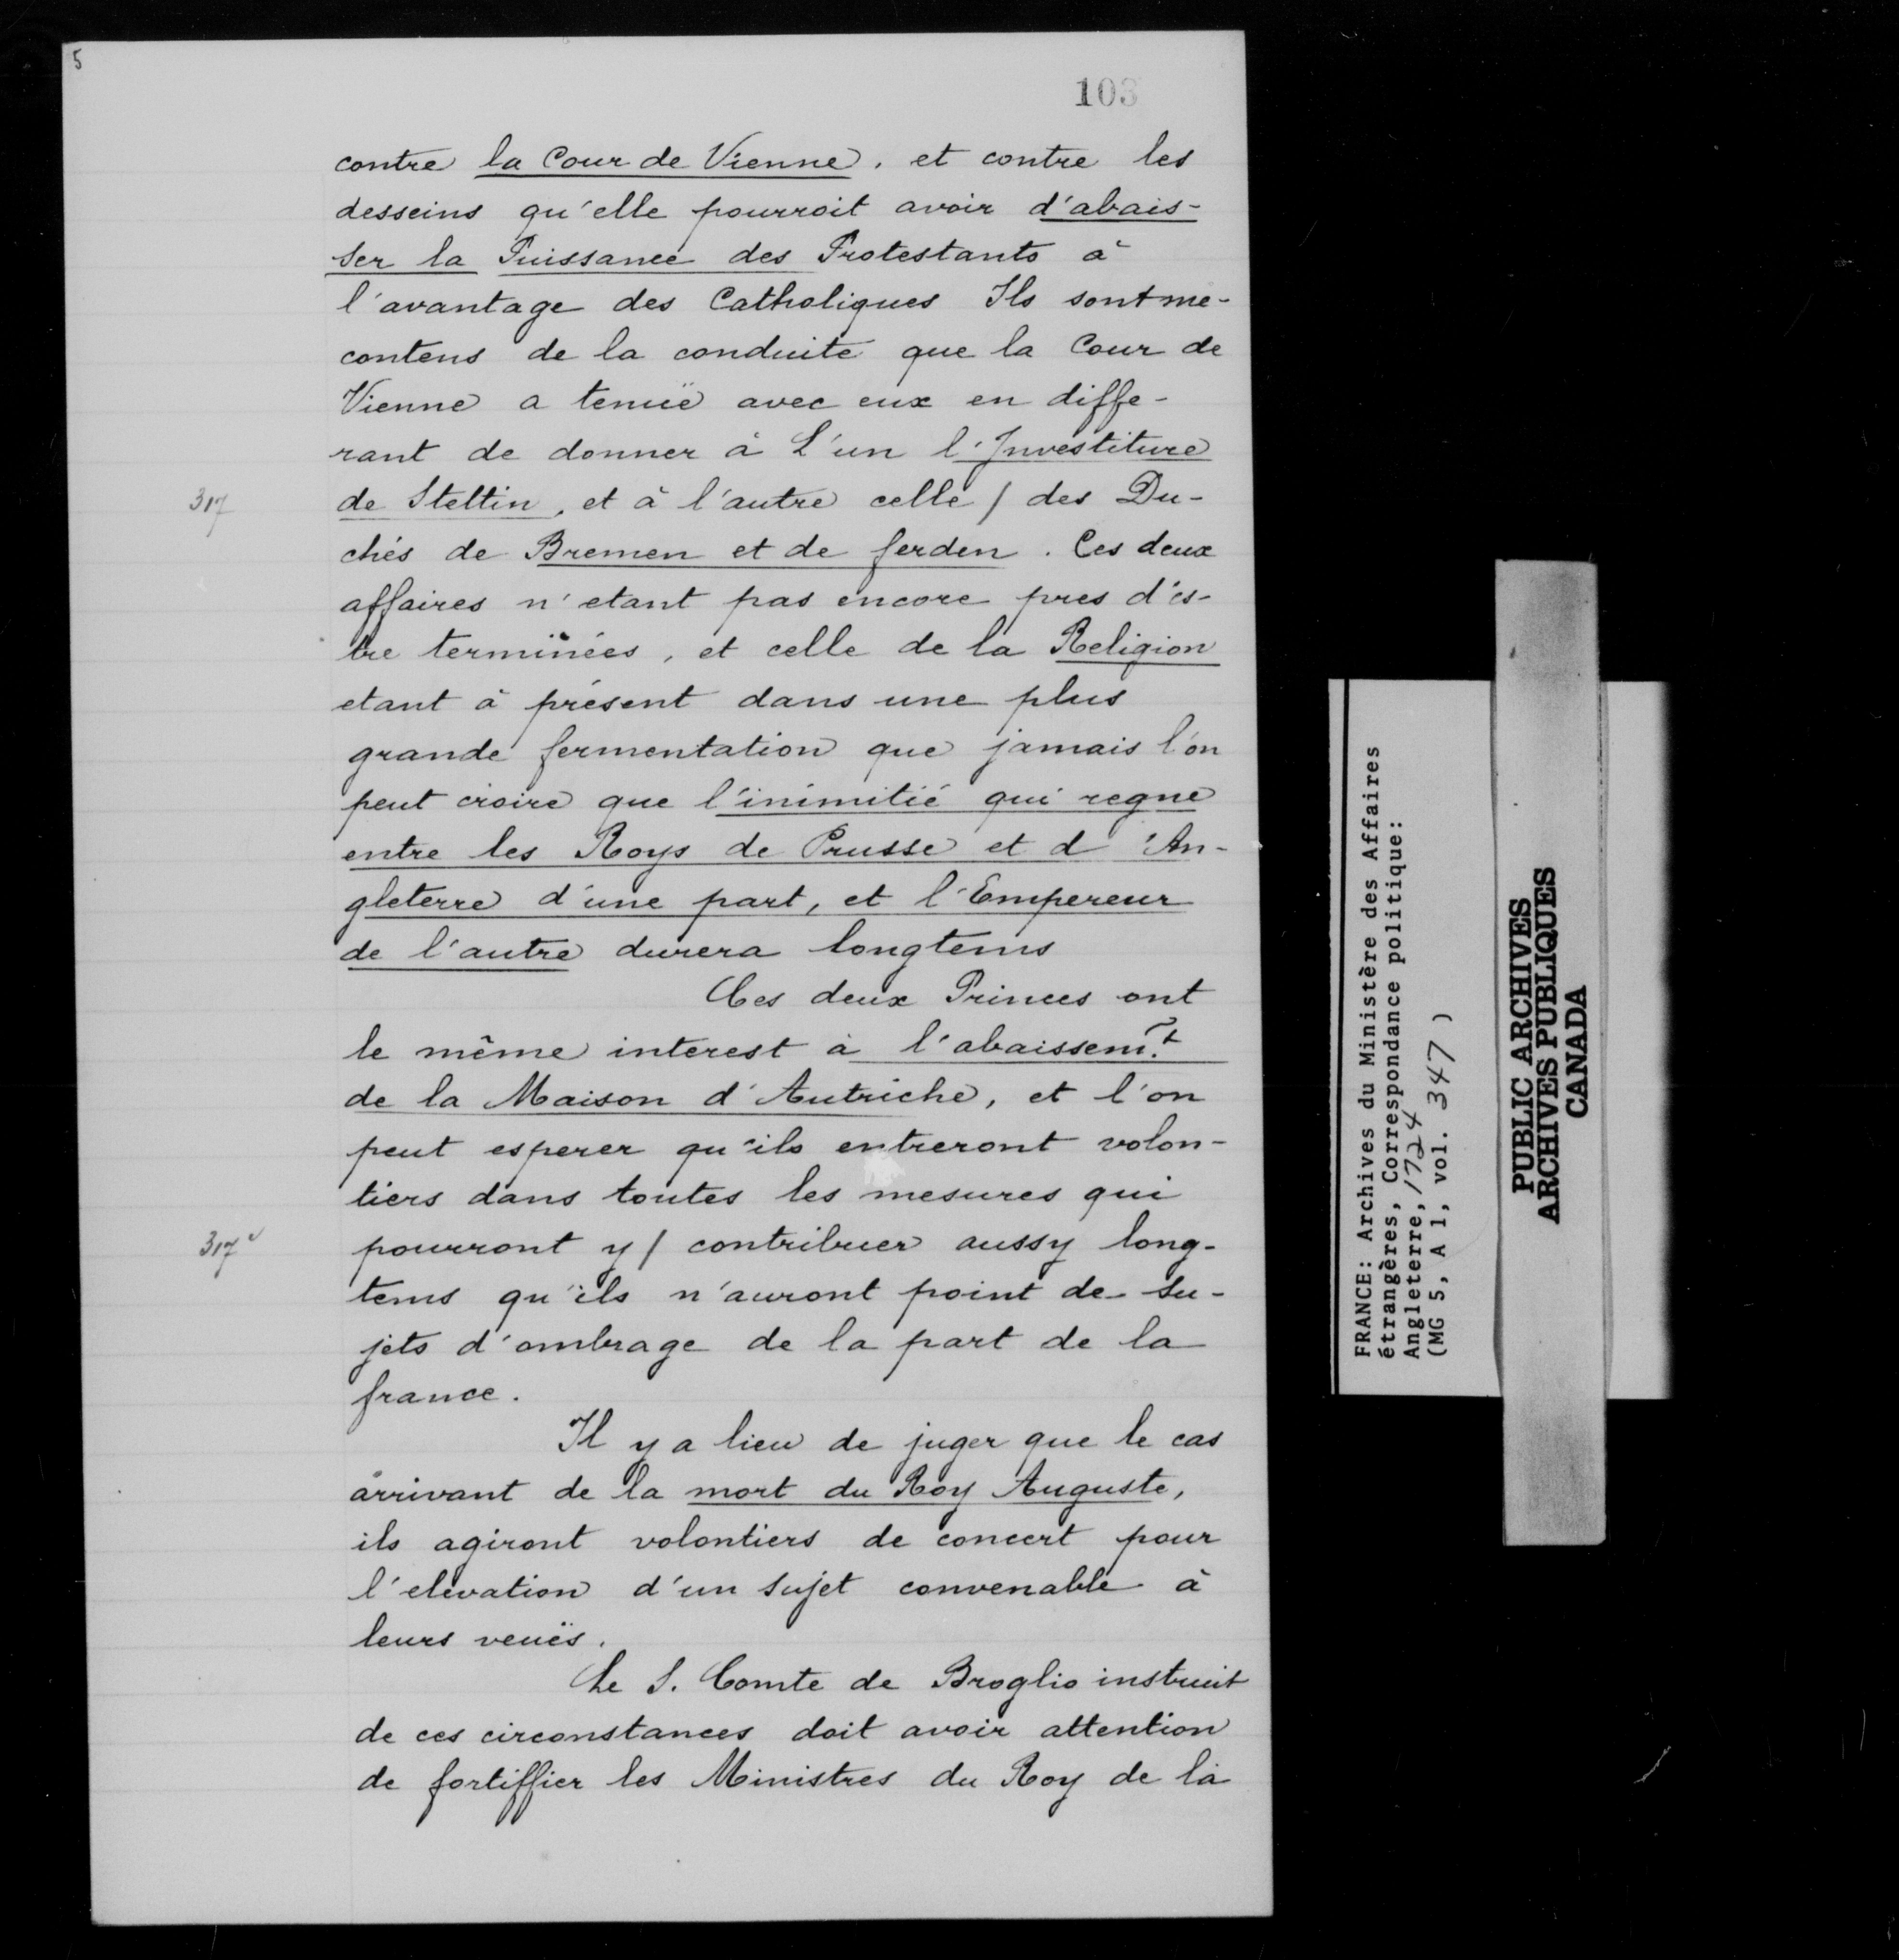 5
103
contre la Cour de Vienne, et contre les
desseins qu'elle pourroit avoir d'abais-
ser la Puissance des Protestants à
l'avantage des Catholiques Ils sont me-
contens de la conduite que la Cour de
Vienne a tenuë avec eux en diffe-
rant de donner à L'un l'Investiture
317
de Stettin, et à l'autre celle / des Du-
chés de Bremen et de ferden. Ces deux
affaires n'etant pas encore pres d'es-
tre terminées, et celle de la Religion
etant à présent dans une plus
grande fermentation que jamais l'on
peut croire que l'inimitié qui regne
entre les Roys de Prusse et d'An-
gleterre d'une part, et l'Empereur
de l'autre durera longtems
Ces deux Princes ont
le même interest à l'abaissemt.
de la Maison d'Autriche, et l'on
peut esperer qu'ils entreront volon-
tiers dans toutes les mesures qui
317v
pourront y / contribuer aussy long-
tems qu'ils n'auront point de su-
jets d'ombrage de la part de la
france.
Il y a lieu de juger que le cas
arrivant de la mort du Roy Auguste,
ils agiront volontiers de concert pour
l'elevation d'un sujet convenable à
leurs veuës.
Le S. Comte de Broglio instruit
de ces circonstances doit avoir attention
de fortiffier les Ministres du Roy de la
FRANCE: Archives du Ministère des Affaires
étrangères, Correspondance politique:
Angleterre, 1724
(MG 5, A 1, vol. 347 )
PUBLIC ARCHIVES
ARCHIVES PUBLIQUES
CANADA